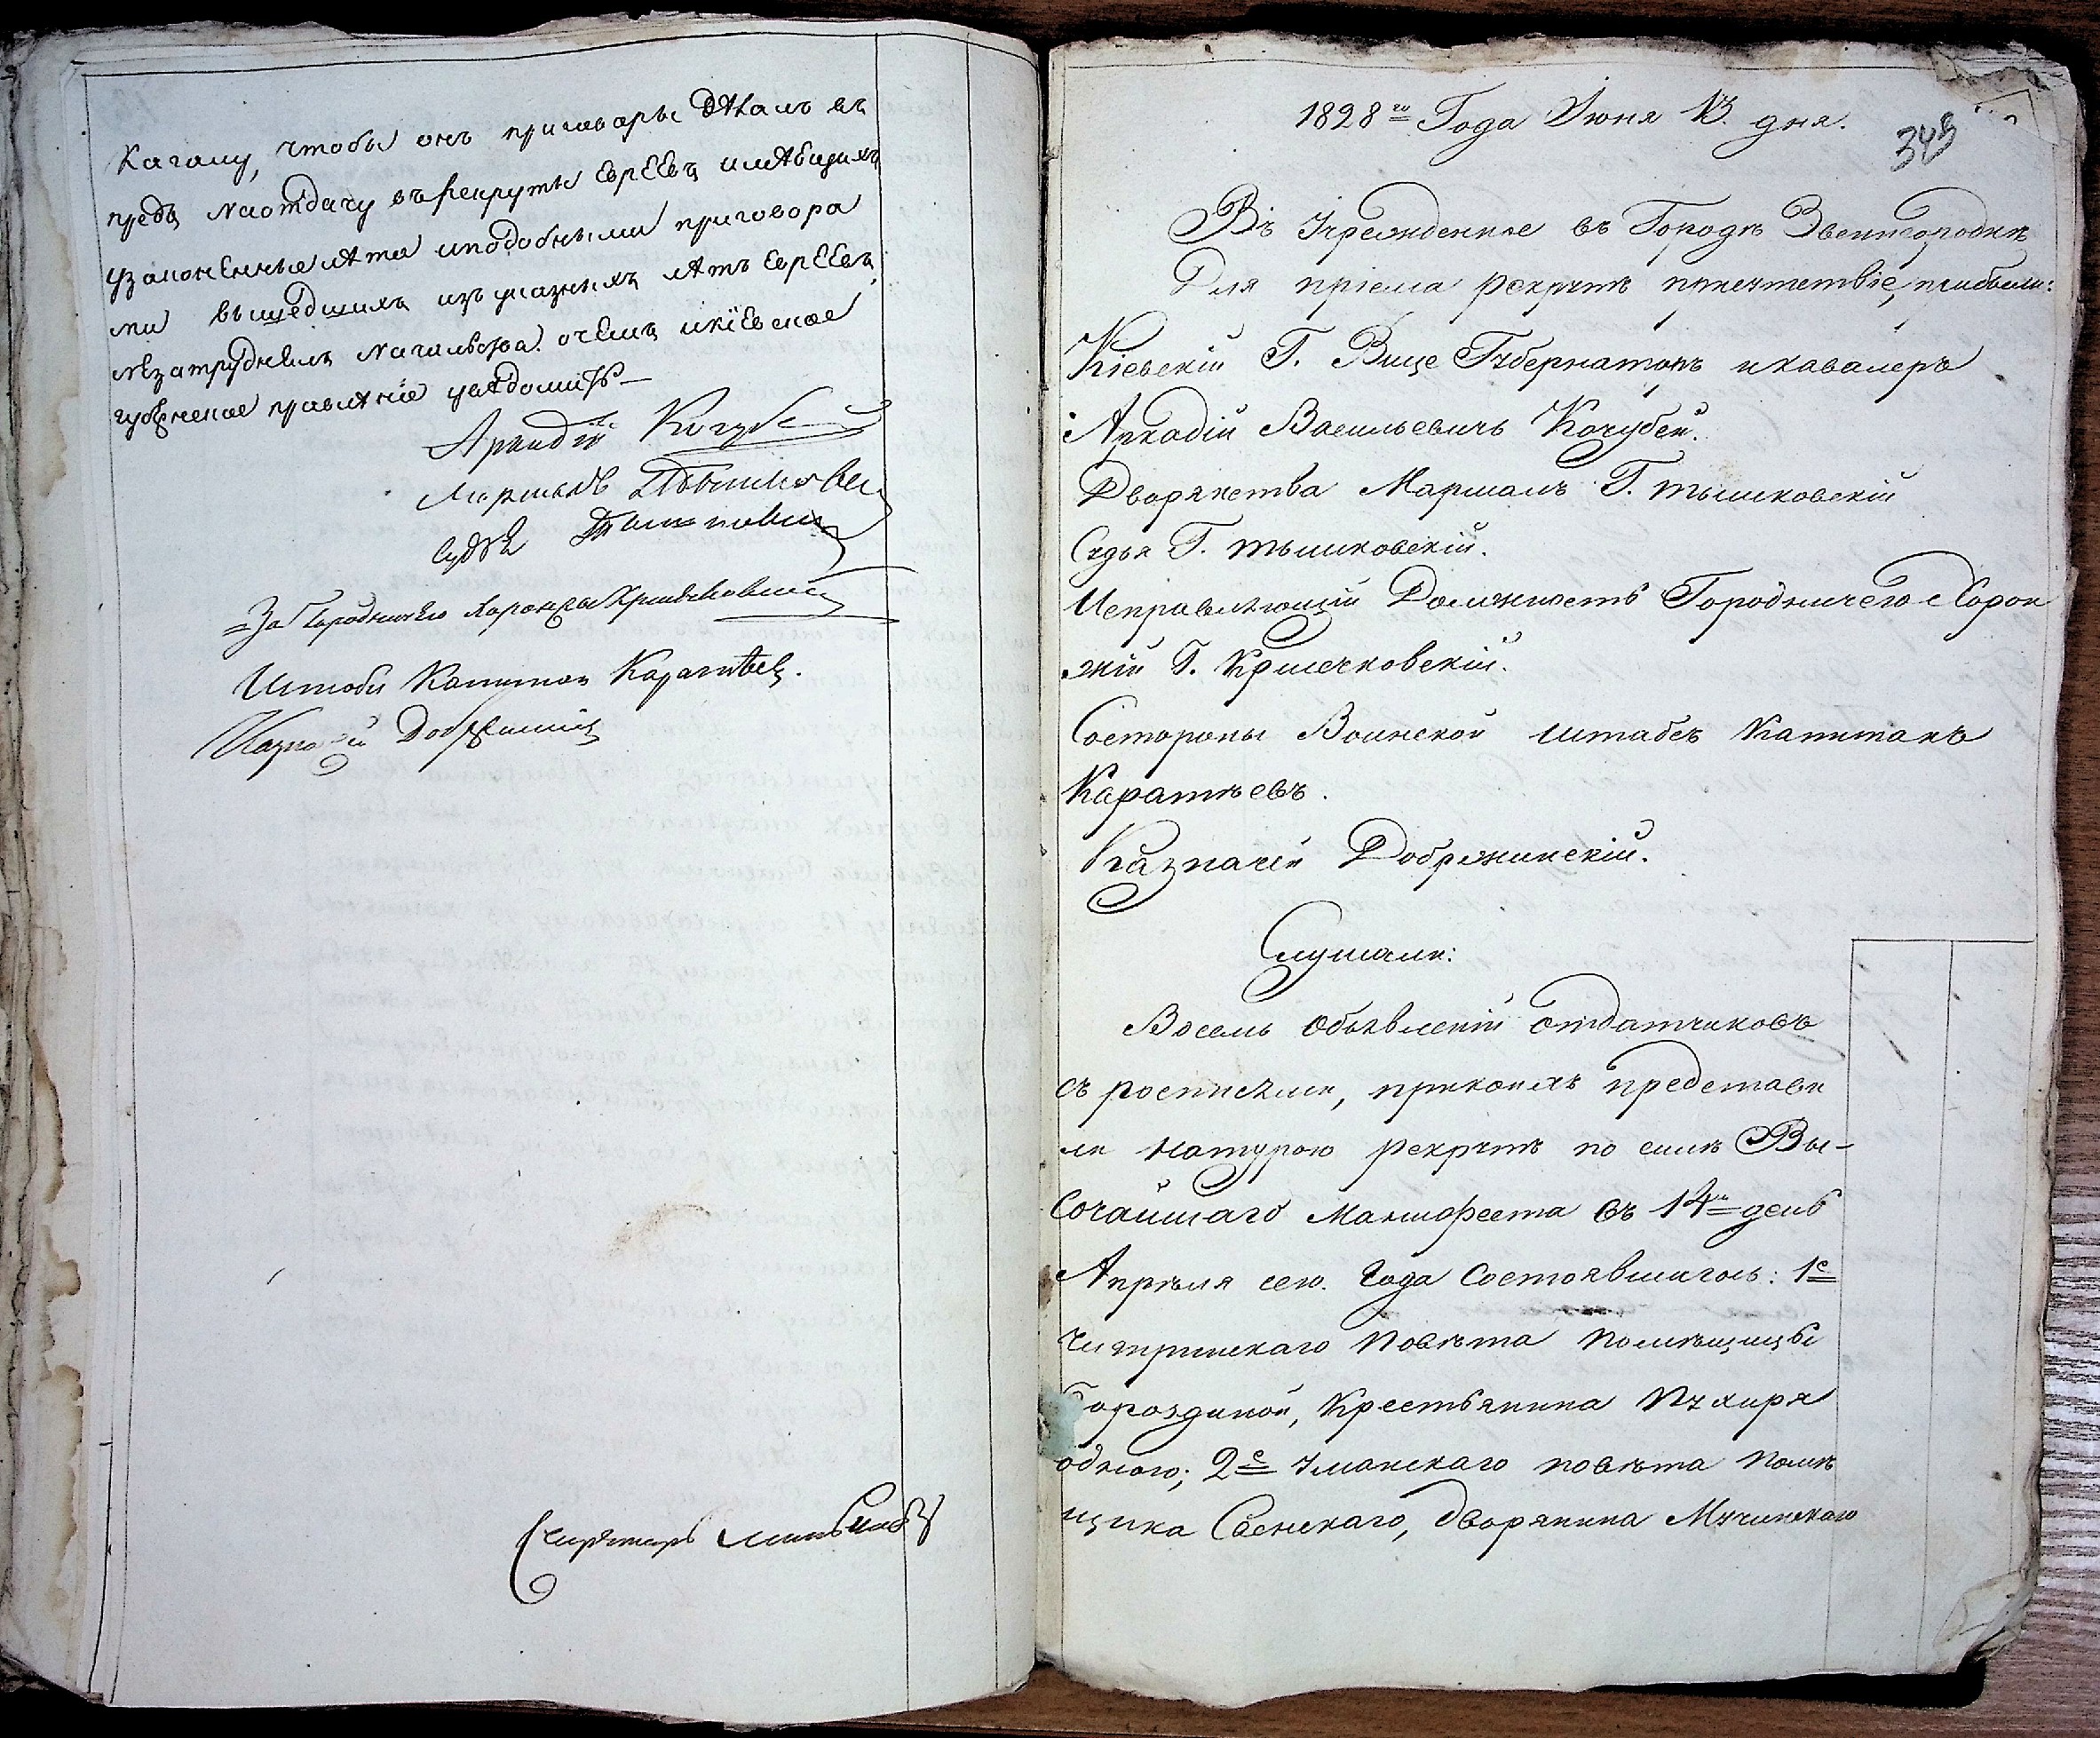 Кагалу, чтобы онъ приговоры дѣлалъ въ
предь на отдачу въ рекруты Евреевъ имѣющихъ
узаконенные лѣта и подобными приговора
ми вышедшихъ изъ указныхъ лѣтъ Евреевъ
не затруднялъ начальства. о чемъ и кіевское
губернское правленіе увѣдомить—
Аркадій Кочубей
Маршалъ Тышковскій
Судья Тышковскій
За Городничего Хоронжій Кришчковскій
Штабсъ Капитанъ Каратѣевъ.
Казначей Добржинскій
Секретарь
1828го Года Іюня 13. дня.
343
Въ Учрежденное въ Городѣ Звенигородкѣ
Для пріема рекрутъ присутствіе, прибыли:
Кіевскій Г. Вице Губернаторъ и кавалеръ
Аркадій Васильевичъ Кочубей.
Дворянства Маршалъ Г. Тышковскій
Судья Г. Тышковскій.
Исправляющій Должность Городничего Хорон
жій Г. Кришчковскій.
Состороны Воинской Штабсъ Капитанъ
Каратѣевъ.
Казначей Добржинскій.
Слушали:
Восемь Объявленій отдатчиковъ
съ росписьми, прикоихъ представи
ли натурою рекрутъ по силѣ Вы-
сочайшаго Манифеста въ 14й день
Апрѣля сего. Года Состоявшагось: 1е
Чигринскаго Повѣта Помѣщицы
Бороздиной, Крестьянина Пухиря
одного; 2е Уманскаго повѣта Помѣ
щика Свенскаго, дворянина Мучинскаго